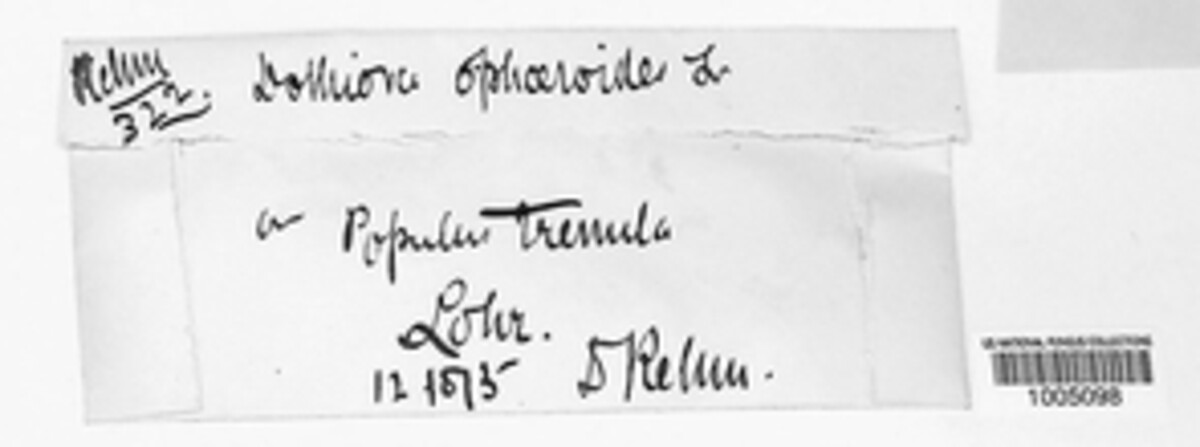 Rehm
322.
Dothiora sphaeroides
a Populus tremula
Lohr.
12 1875
D Rehm.
US NATIONAL FUNGUS COLLECTIONS
1005098